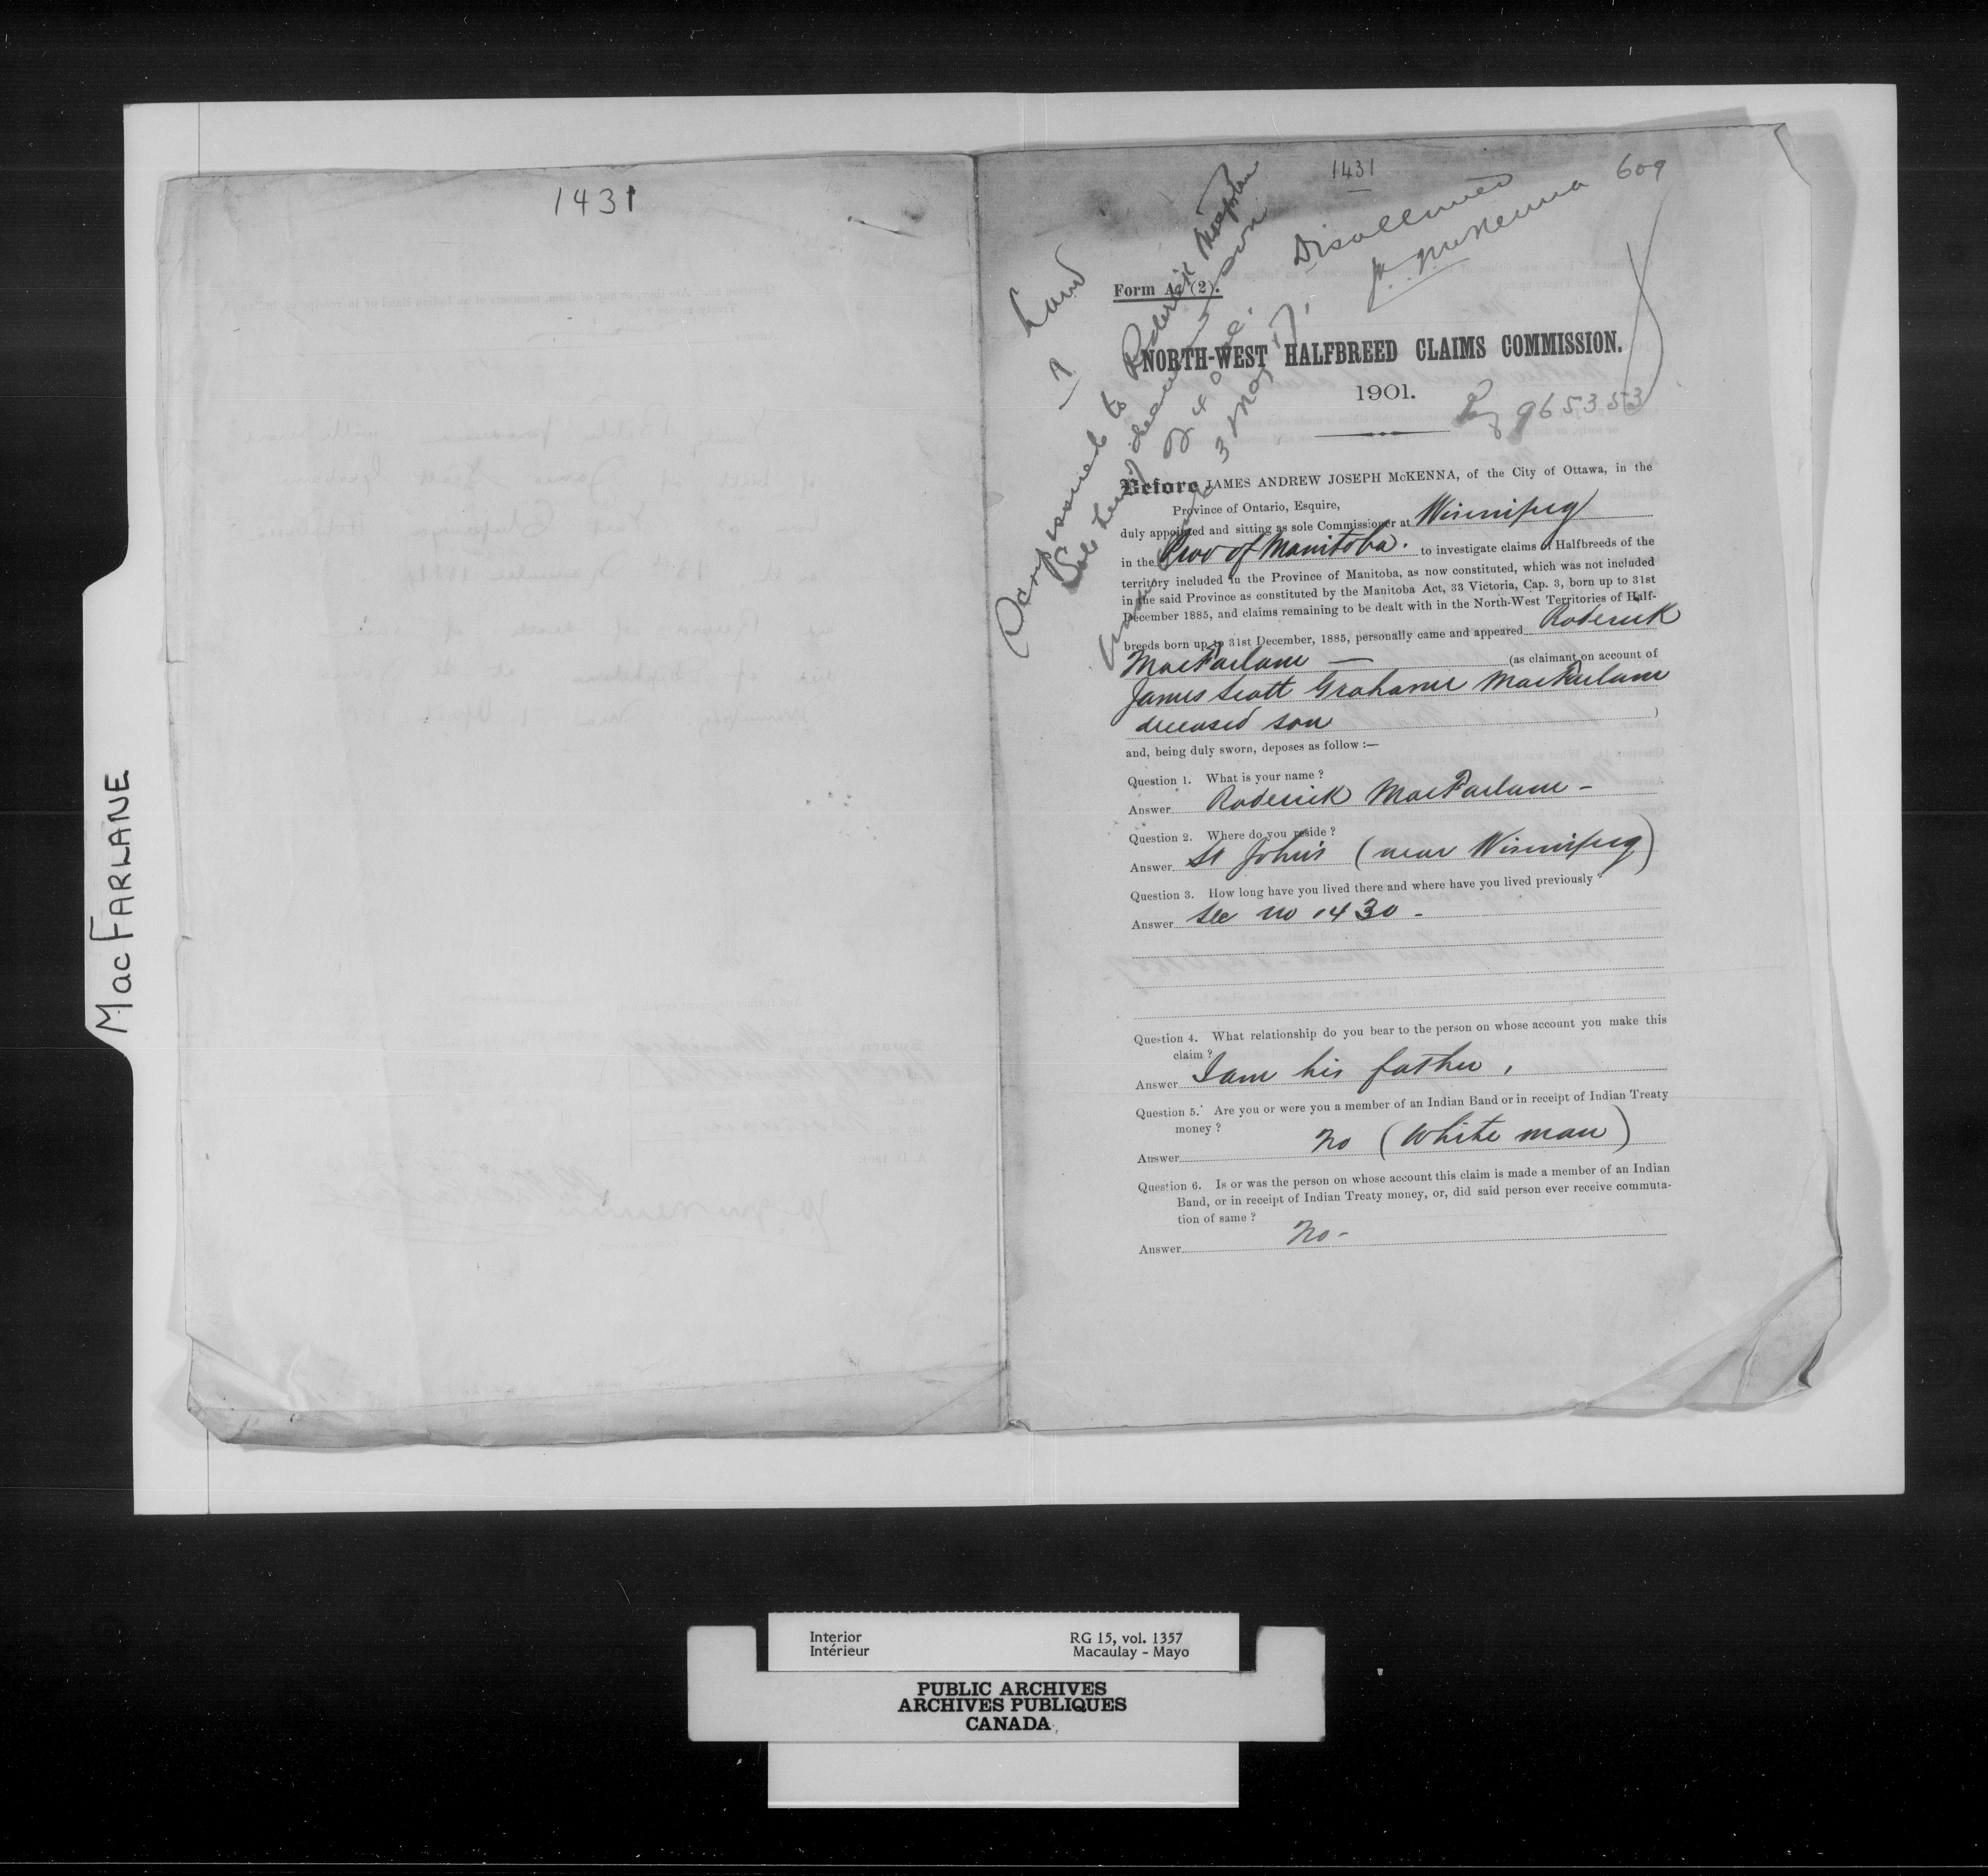 MacFARLANE
1431
1431
609
Disallowed
McKenna
Land
Scrip issued to Roderick MacFarlane
Sole heir deceased son
for 240 ac.
3 May
965353
Form A (2).
NORTH-WEST HALFBREED CLAIMS COMMISSION.
1901.
Before JAMES ANDREW JOSEPH McKENNA, of the City of Ottawa, in the
Province of Ontario, Esquire,
duly appointed and sitting as sole Commissioner at Winnipeg
in the Prov of Manitoba. to investigate claims of Halfbreeds of the
territory included in the Province of Manitoba, as now constituted, which was not included
in the said Province as constituted by the Manitoba Act, 33 Victoria, Cap. 3, born up to 31st
December 1885, and claims remaining to be dealt with in the North-West Territories of Half-
breeds born up to 31st December, 1885, personally came and appeared Roderick
MacFarlane — (as claimant on account of
James Scott Grahame MacFarlane
deceased son )
and, being duly sworn, deposes as follow :—
Question 1. What is your name ?
Answer Roderick MacFarlane -
Question 2. Where do you reside ?
Answer St John's (near Winnipeg)
Question 3. How long have you lived there and where have you lived previously ?
Answer See no 1430 -
Question 4. What relationship do you bear to the person on whose account you make this
claim ?
Answer I am his father.
Question 5. Are you or were you a member of an Indian Band or in receipt of Indian Treaty
money ?
Answer No (White man)
Question 6. Is or was the person on whose account this claim is made a member of an Indian
Band, or in receipt of Indian Treaty money, or, did said person ever receive commuta-
tion of same ?
Answer No -
Interior
Intérieur
RG 15, vol. 1357
Macaulay - Mayo
PUBLIC ARCHIVES
ARCHIVES PUBLIQUES
CANADA